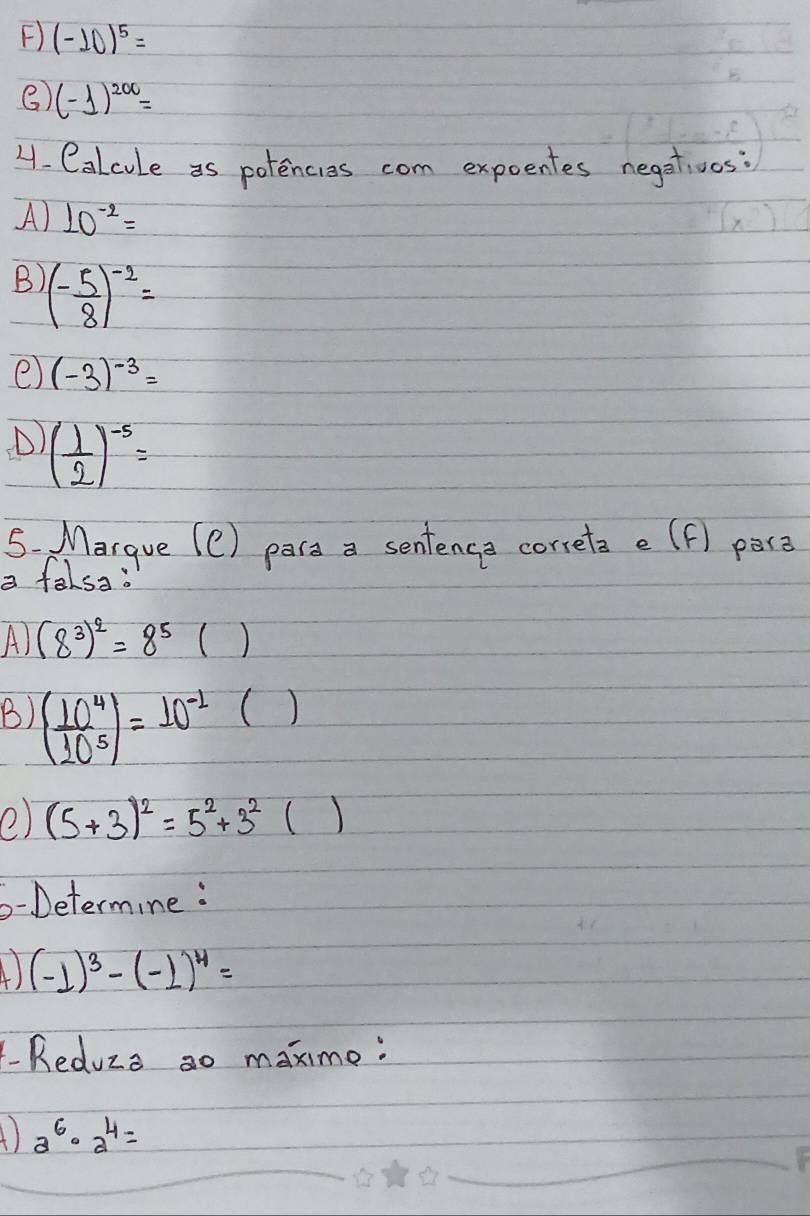 F) (-10)⁵ =
C) (-1)²⁰⁰ =
4- Calcule as potências com expoentes negativos:
A) 10⁻² =
B) (-5/8)⁻² =
C) (-3)⁻³ =
D) (1/2)⁻⁵ =
5- Marque (C) para a sentença correta e (F) para
a falsa:
A) (8³)² = 8⁵ ( )
B) (10⁴/10⁵) = 10⁻¹ ( )
C) (5+3)² = 5²+3² ( )
6- Determine:
A) (-1)³ - (-1)⁴ =
- Reduza ao máximo:
A) a⁶ · a⁴ =